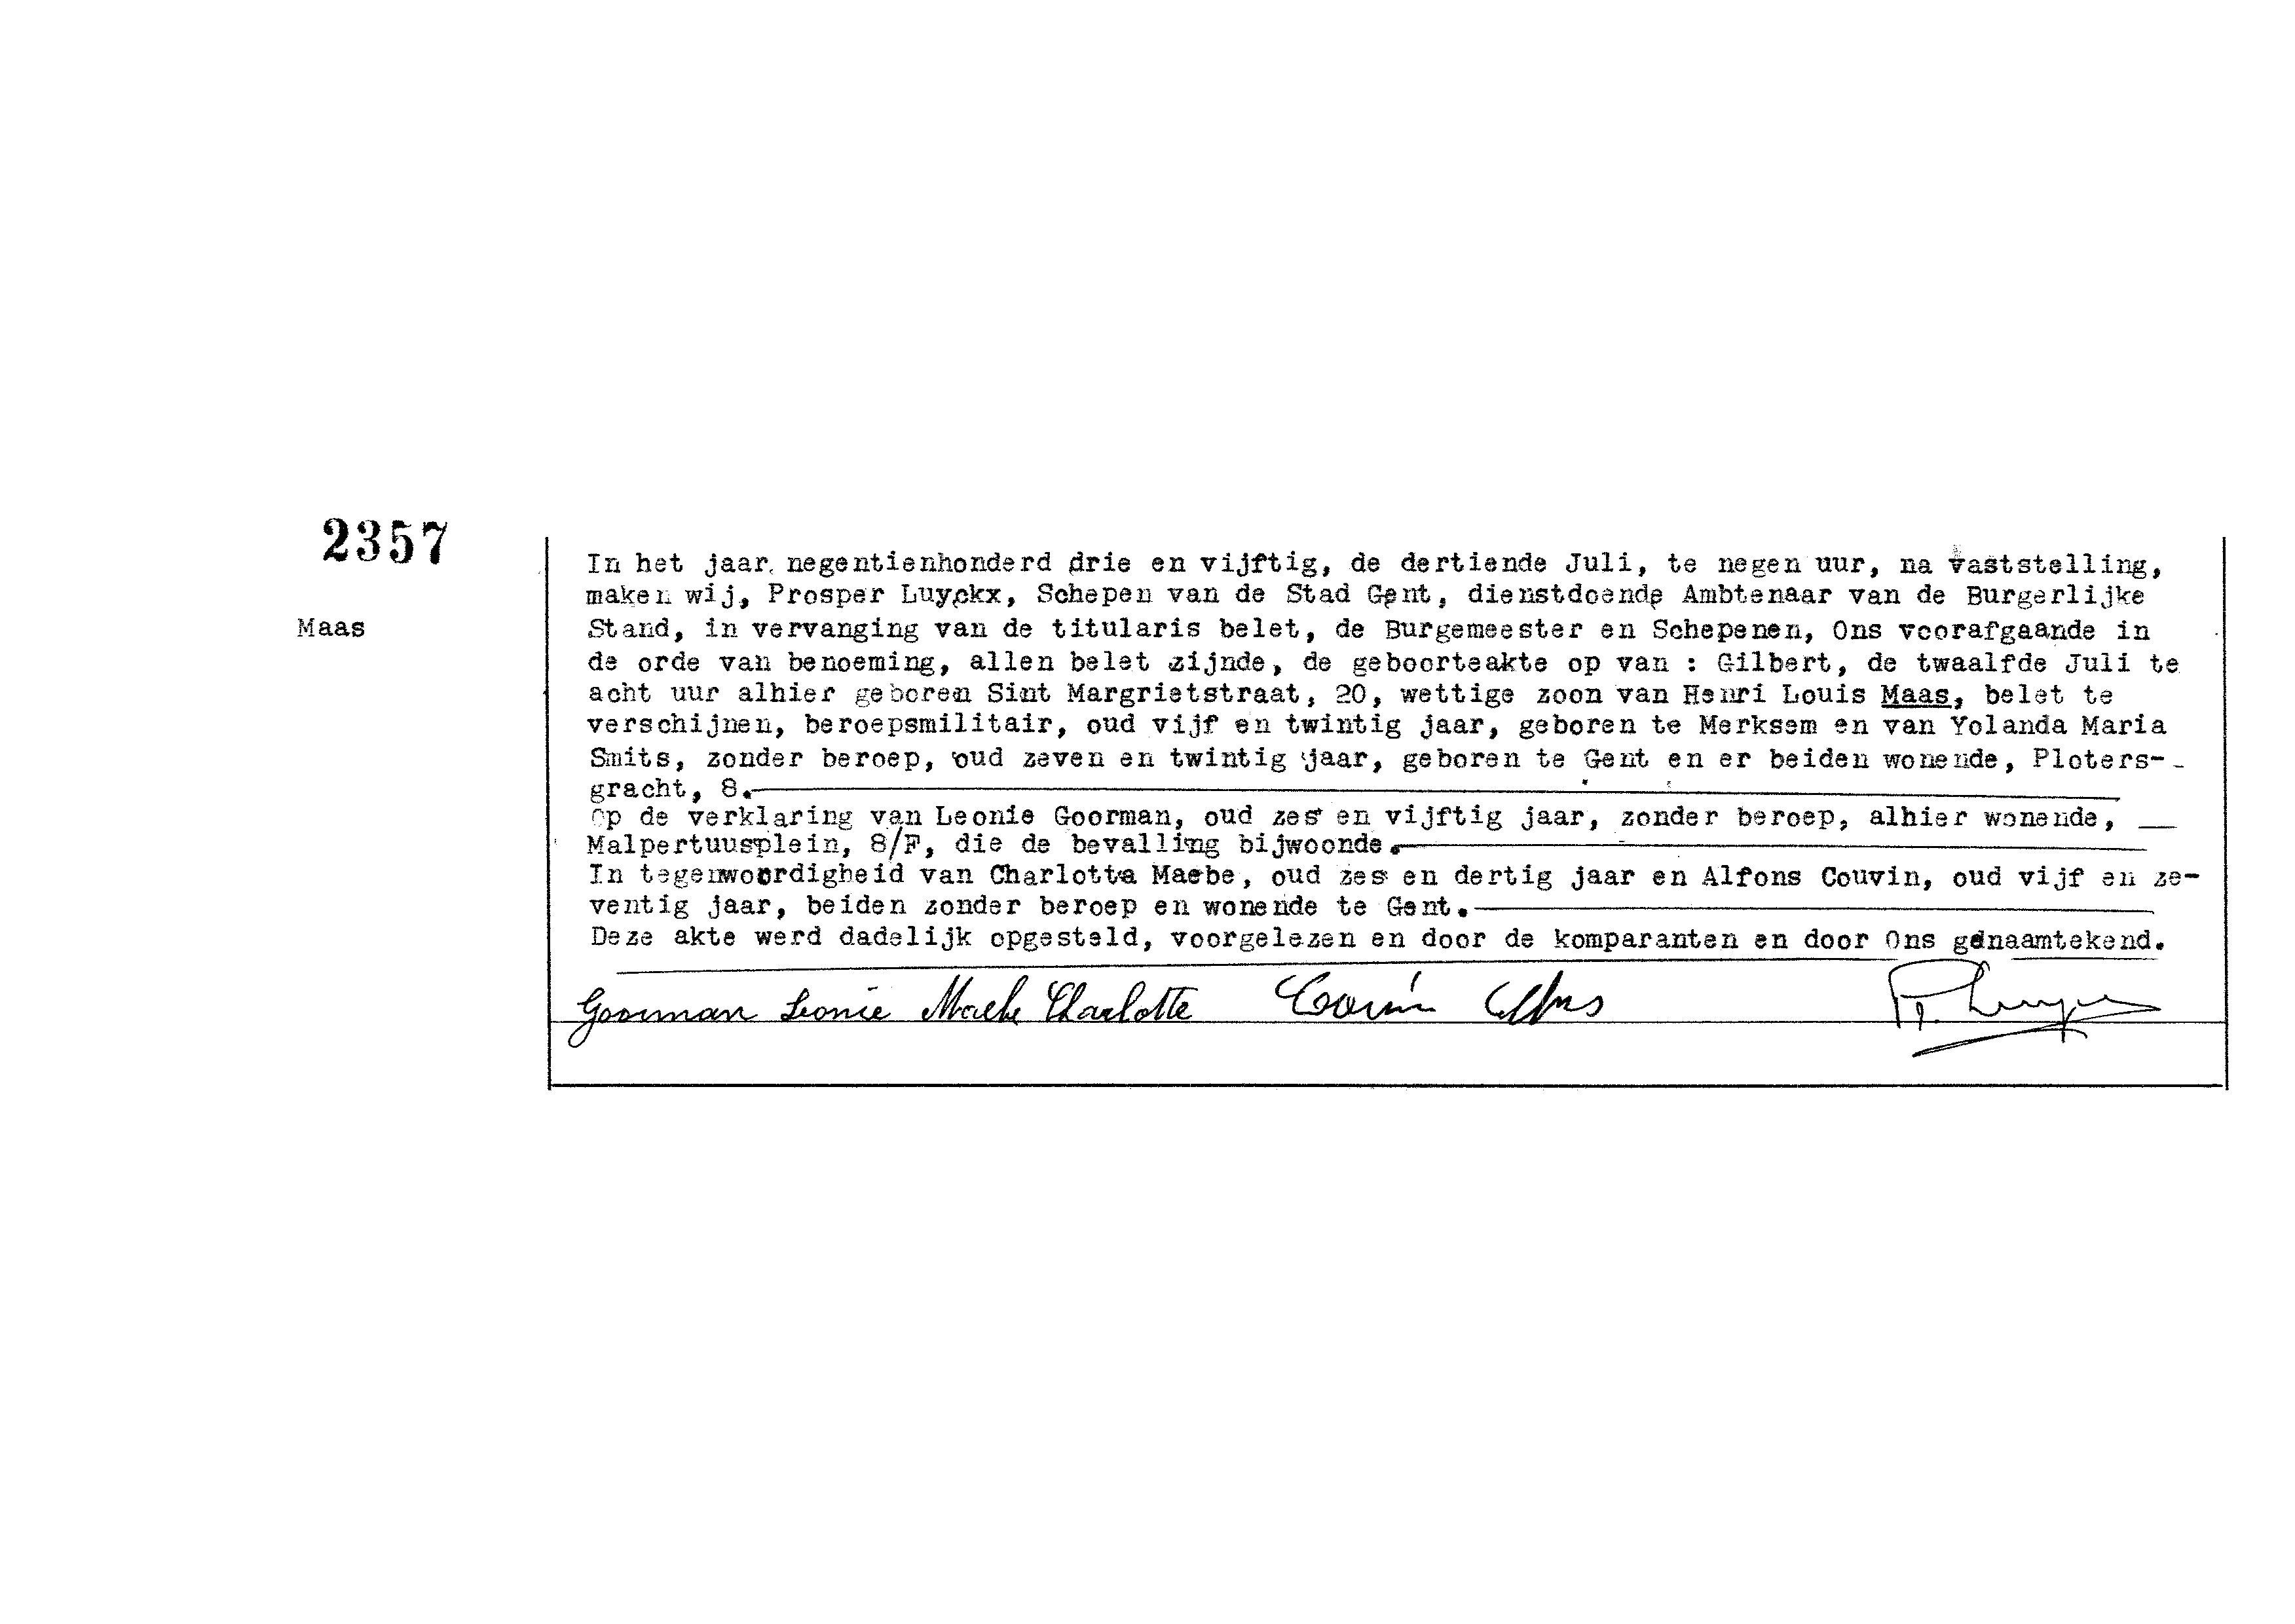 2357
Maas
In het jaar negentienhonderd drie en vijftig, de dertiende Juli, te negen uur, na vaststelling,
maken wij, Prosper Luyckx, Schepen van de Stad Gent, dienstdoende Ambtenaar van de Burgerlijke
Stand, in vervanging van de titularis belet, de Burgemeester en Schepenen, Ons voorafgaande in
de orde van benoeming, allen belet zijnde, de geboorteakte op van : Gilbert, de twaalfde Juli te
acht uur alhier geboren Sint Margrietstraat, 20, wettige zoon van Henri Louis Maas, belet te
verschijnen, beroepsmilitair, oud vijf en twintig jaar, geboren te Merksem en van Yolanda Maria
Smits, zonder beroep, oud zeven en twintig jaar, geboren te Gent en er beiden wonende, Ploters-
gracht, 8.
Op de verklaring van Leonie Goorman, oud zes en vijftig jaar, zonder beroep, alhier wonende,
Malpertuusplein, 8/F, die de bevalling bijwoonde.
In tegenwoordigheid van Charlotta Maebe, oud zes en dertig jaar en Alfons Couvin, oud vijf en ze-
ventig jaar, beiden zonder beroep en wonende te Gent.
Deze akte werd dadelijk opgesteld, voorgelezen en door de komparanten en door Ons genaamtekend.
Goorman Leonie Maebe Charlotte Couvin Alfons